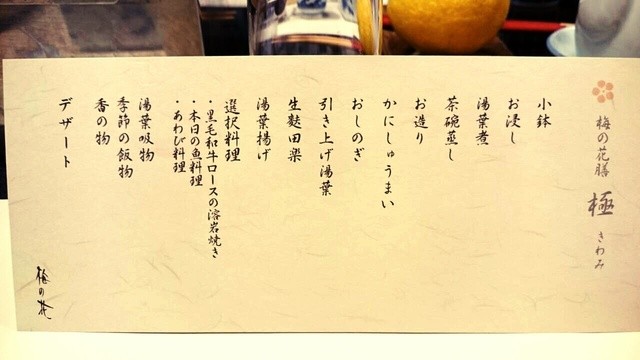 梅の花膳 極 きわみ
小鉢
お浸し
湯葉煮
茶碗蒸し
お造り
かにしゅうまい
おしのぎ
引き上げ湯葉
生麩田楽
湯葉揚げ
選択料理
・黒毛和牛ロースの溶岩焼き
・本日の魚料理
・あわび料理
湯葉吸物
季節の飯物
香の物
デザート
梅の花